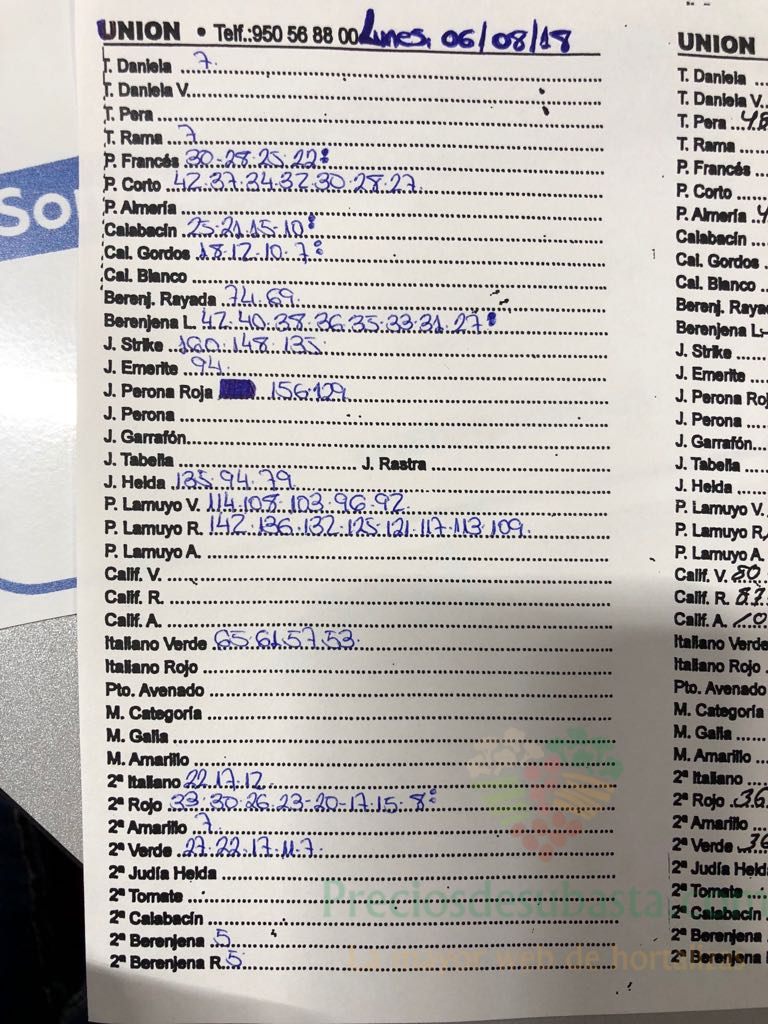 UNION • Telf.:950 56 88 00 Lunes, 06/08/18
T. Daniela 7
T. Daniela V.
T. Pera
T. Rama 7
P. Francés 30-28-25-22:
P. Corto 42.37.34.32.30.28.27
P. Almería
Calabacín 25.21.15.10:
Cal. Gordos 18.12.10.7:
Cal. Blanco
Berenj. Rayada 74.69
Berenjena L. 42.40.38.36.35.33.31.27:
J. Strike 160.148.135
J. Emerite 94
J. Perona Roja 156.129
J. Perona
J. Garrafón
J. Tabella J. Rastra
J. Helda 135.94.79
P. Lamuyo V. 114.108.103.96.92
P. Lamuyo R. 142.136.132.125.121.117.113.109
P. Lamuyo A.
Calif. V.
Calif. R.
Calif. A.
Italiano Verde 65.61.57.53
Italiano Rojo
Pto. Avenado
M. Categoría
M. Galia
M. Amarillo
2ª Italiano 22.17.12
2ª Rojo 33.30.26.23-20-17.15.8:
2ª Amarillo 7
2ª Verde 27.22.17.11.7
2ª Judía Helda
2ª Tomate
2ª Calabacín
2ª Berenjena 5
2ª Berenjena R. 5
Preciosdesubasta
La mayor web de
UNION
T. Daniela
T. Daniela V.
T. Pera 48
T. Rama
P. Francés
P. Corto
P. Almería
Calabacín
Cal. Gordos
Cal. Blanco
Berenj. Raya
Berenjena L.
J. Strike
J. Emerite
J. Perona Ro
J. Perona
J. Garrafón
J. Tabella
J. Helda
P. Lamuyo V.
P. Lamuyo R.
P. Lamuyo A.
Calif. V. 80
Calif. R. 83
Calif. A. 10
Italiano Verde
Italiano Rojo
Pto. Avenado
M. Categoría
M. Galia
M. Amarillo
2ª Italiano
2ª Rojo 36
2ª Amarillo
2ª Verde 36
2ª Judía Held
2ª Tomate
2ª Calabacín
2ª Berenjena
2ª Berenjena